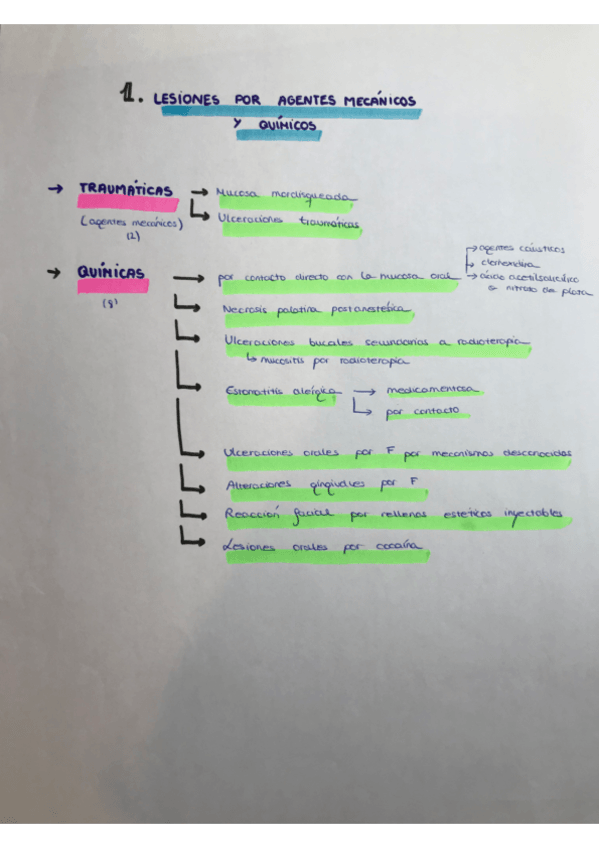 1. LESIONES POR AGENTES MECÁNICOS
Y QUÍMICOS
→ TRAUMÁTICAS → Mucosa mordisqueada
(agentes mecánicos) ↳ Ulceraciones traumáticas
(2)
→ agentes cáusticos
→ QUÍMICAS → por contacto directo con la mucosa oral → clorhexidina
(8) → ácido acetilsalicílico
↳ nitrato de plata
↳ Necrosis palatina postanestésica
↳ Ulceraciones bucales secundarias a radioterapia
↳ mucositis por radioterapia
↳ Estomatitis alérgica → medicamentosa
↳ por contacto
↳ Ulceraciones orales por F por mecanismos desconocidos
↳ Alteraciones gingivales por F
↳ Reacción facial por rellenos estéticos inyectables
↳ Lesiones orales por cocaína